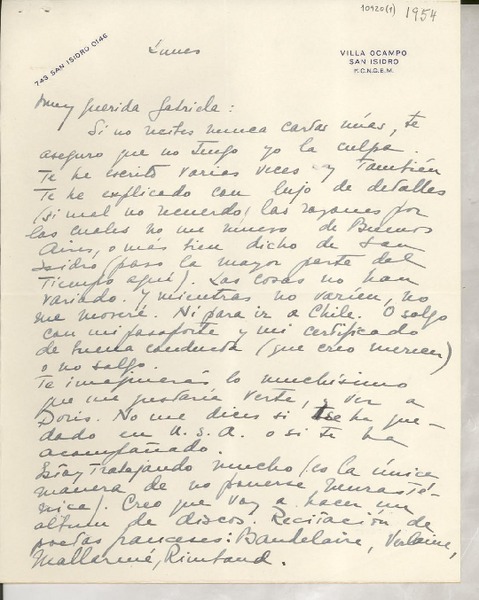 10920(1) 1954
743 SAN ISIDRO 0146
Lunes
VILLA OCAMPO
SAN ISIDRO
F.C.N.G.B.M.
Muy querida Gabriela:
Si no recibes nunca cartas mías, te
aseguro que no tengo yo la culpa.
Te he escrito varias veces y también
te he explicado con lujo de detalles
(si mal no recuerdo) las razones por
las cuales no me muevo de Buenos
Aires, o más bien dicho de San
Isidro (paso la mayor parte del
tiempo aquí). Las cosas no han
variado. Y mientras no varíen, no
me moveré. Ni para ir a Chile. O salgo
con mi pasaporte y mi certificado
de buena conducta (que creo merecer)
o no salgo.
Te imaginarás lo muchísimo
que me gustaría verte, y ver a
Doris. No me dices si se ha que-
dado en U.S.A. o si te ha
acompañado.
Estoy trabajando mucho (es la única
manera de no ponerse neurasté-
nica). Creo que voy a hacer un
album de discos. Recitación de
poetas franceses: Baudelaire, Verlaine,
Mallarmé, Rimbaud.